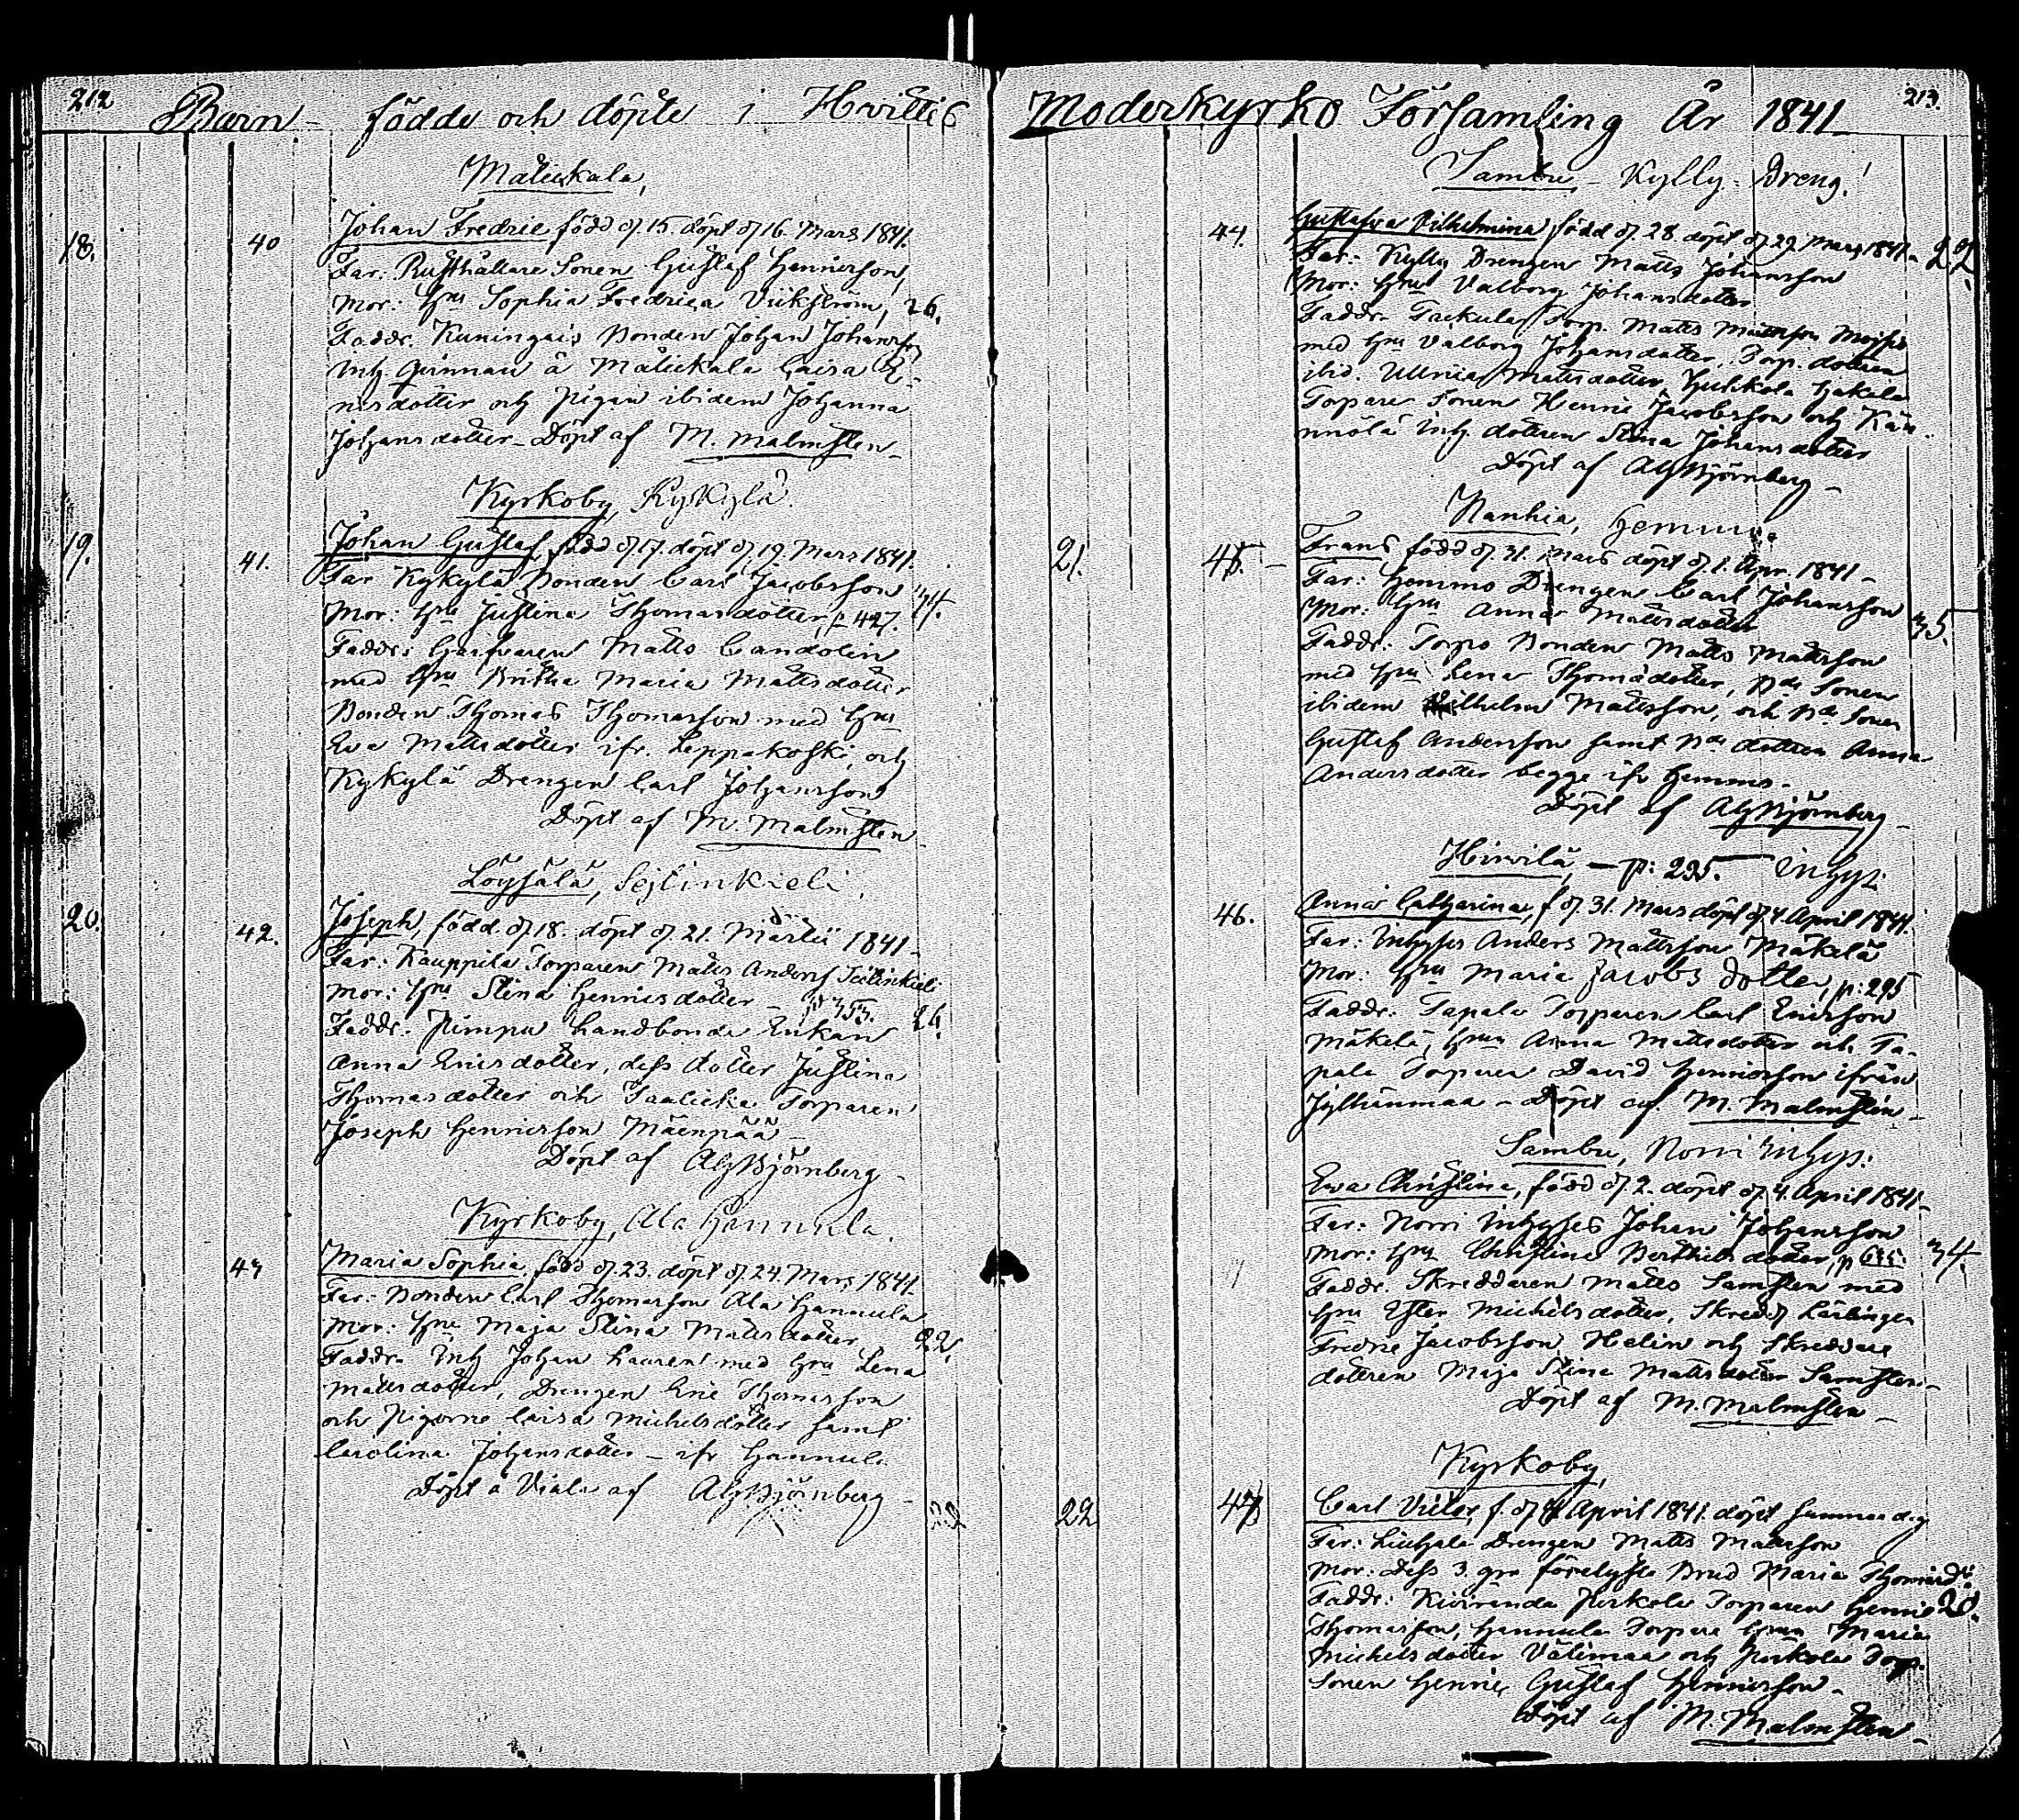 212
Barn födde och döpte i Hvittis
Matickala,
18. 40 Johan Fredric född d. 15. döpt d. 16. Mars 1841.
Far: Rusthållare Sonen Gustaf Henricsson,
Mor: Hru Sophia Fredrica Vikström, 26.
Faddr. Kuningais Bonden Johan Johansson
Inh. qvinnan å Matickala Caisa
nrsdotter och Pigan ibidem Johanna
Johansdotter – Döpt af M. Malmsten –
Kyrkoby, Kykylä.
19. 41. Johan Gustaf född d. 17. döpt d. 19. Mars 1841.
Far Kykylä Bonden Carl Jacobsson
Mor: Hru Justina Thomasdotter, p 427. 34.
Faddr: Garfvaren Matts Candolin
med Hru Britha Maria Mattsdotter
Bonden Thomas Thomasson med Hru
Eva Mattsdotter ifr. Leppäkoski, och
Kykylä Drengen Carl Johansson
Döpt af M. Malmsten
Löysälä, Sejlinkieli.
20. 42. Joseph, född d. 18. döpt d. 21. Martii 1841 –
Far: Kauppila Torparen Matts Anders Seilinkieli
Mor: Hru Stina Henricsdotter – p 753. 26.
Faddr. Pimpu Landbonde Enkan
Anna Ericsdotter, dess dotter Justina
Thomasdotter och Torparen
Joseph Henricsson Mäenpää –
Döpt af Björnberg –
Kyrkoby, Ala Hannula.
43 Maria Sophia född d. 23. döpt d. 24. Mars 1841
Far: Bonden Carl Thomasson Ala Hannula
Mor: Hru Maja Stina Mattsdotter 22.
Faddr. Inh Johan Lauren med Hru Lena
Mattsdotter, Drengen Eric Thomasson
och Pigorne Caisa Michelsdotter samt
Carolina Johansdotter – ifr Hannula
Döpt å Viala af Björnberg –
22
213.
Moderkyrko Församling År 1841
Sambu – Kylly – Dreng.
44. Gustafva Vilhelmina född d. 28. döpt d. 29. Mars 1841 – 22.
Far: Kylly Drengen Matts Johansson
Mor: Hru Valborg Johansdotter
Faddr. Torp. Matts Mattsson
med Hru Valborg Johansdotter, Torp. dottren
ibid. Ulrica Mattsdotter, Huhkola
Torpare Sonen Henric Jacobsson och Kän
nölä Inh. dottren Stina Johansdotter
Döpt af Björnberg –
Nanhia, Hemmo.
21. 45. – Frans född d. 31. Mars döpt d. 1. Apr. 1841 –
Far: Hemmo Drengen Carl Johansson
Mor: Hru Anna Mattsdotter 35.
Faddr: Torpo Bonden Matts Mattsson
med Hru Lena Thomædotter, Bde Sonen
ibidem Vilhelm Mattsson, och Bde Sonen
Gustaf Andersson samt Bde dottren Anna
Andersdotter begge ifr Hemmo –
Döpt af Björnberg –
Hirvilä, – p: 295. Inhys.
46. Anna Catharina, f d. 31. Mars döpt d. 4. April 1841.
Far: Inhyses Anders Mattsson Mäkelä
Mor: Hru Maria Jacobs dotter, p: 295
Faddr: Tapala Torparen Carl Ericsson
Mäkelä, Hrun Anna Mattsdotter och Ta-
pala Torparen David Henricsson ifrån
Jylhänmaa – Döpt af M. Malmsten –
Sambu, Norri Inhys:
Eva Christina, född d. 2. döpt d. 4. April 1841 –
Far: Norri Inhyses Johan Johansson
Mor: Hru Christina Berthilsdotter, p 34.
Faddr. Skreddaren Matts Samsten med
Hru Ester Michelsdotter, Skredd Lärlingen
Fredric Jacobsson Helin och Skreddare
dottren Maja Stina Mattsdotter Samsten –
Döpt af M. Malmsten –
Kyrkoby,
22 47 Carl Victor, f. d. 4 April 1841. döpt samma dag
Far: Drengen Matts Mattsson
Mor: Dess 3. gr förelyste Brud Maria Thomædr.
Faddr: Kiviranda Pirkola Torparen Henric 28.
Thomasson, Hannula Torpare Hrun Maria
Michelsdotter Välimaa och Pirkola Torp.
Sonen Henric Gustaf Henricsson –
Döpt af M. Malmsten –